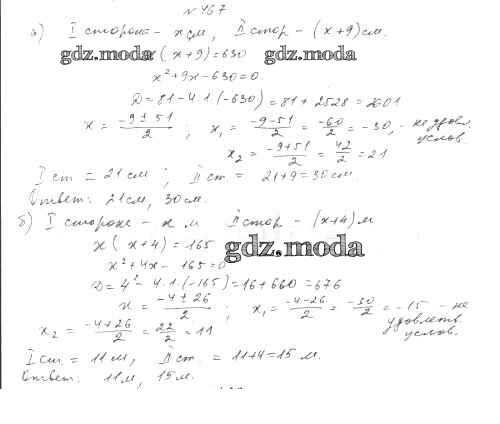 № 467
а) I сторона - x см, II стор - (x+9) см.
gdz.moda x(x+9)=630 gdz.moda
x²+9x-630=0
D=81-4·1·(-630)=81+2528=2601
x=(-9±51)/2; x₁=(-9-51)/2=-60/2=-30, - не удовл. услов.
x₂=(-9+51)/2=42/2=21
I ст=21см; II ст.=21+9=30см.
Ответ: 21см, 30см.
б) I сторона - x м II стор - (x+4) м
x(x+4)=165
gdz.moda
x²+4x-165=0
D=4²-4·1·(-165)=16+660=676
x=(-4±26)/2; x₁=(-4-26)/2=-30/2=-15 - не удовлетв. услов.
x₂=(-4+26)/2=22/2=11
I ст.=11м, II ст.=11+4=15 м.
Ответ: 11м, 15м.